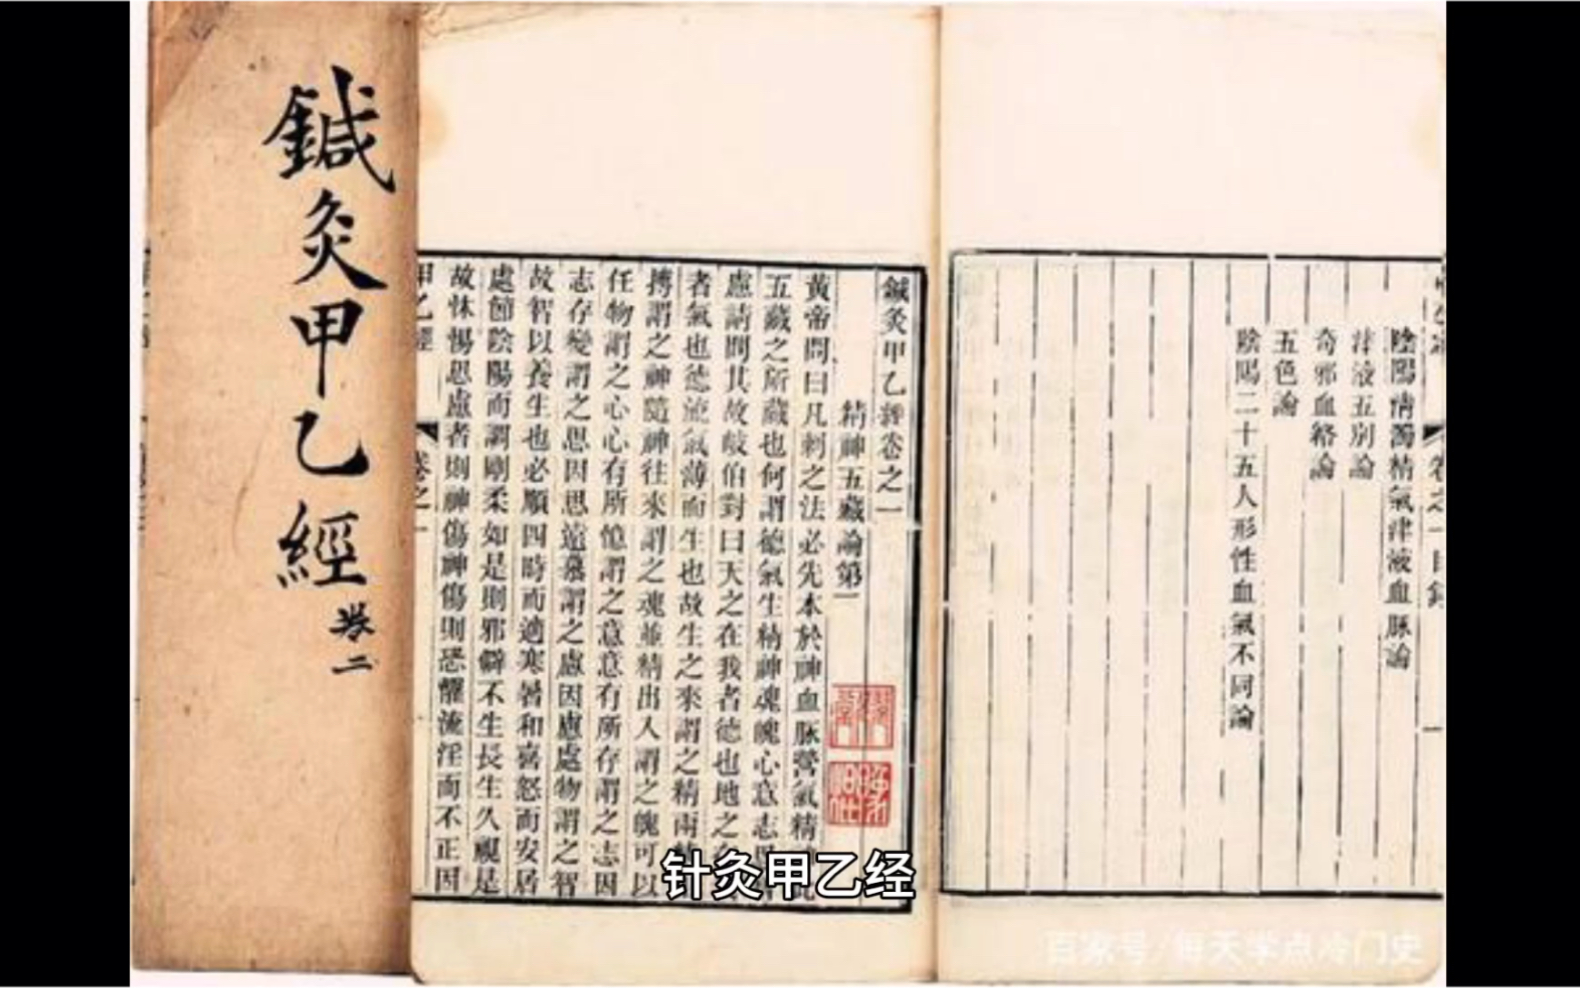 鍼灸甲乙經
卷二
陰陽清濁精氣津液血脉論
津液五別論
奇邪血絡論
五色論
陰陽二十五人形性血氣不同論
卷之一目錄
一
鍼灸甲乙經卷之一
精神五藏論第一
黃帝問曰凡刺之法必先本於神血脉營氣精
五藏之所藏也何謂德氣生精神魂魄心意志思
慮請問其故岐伯對曰天之在我者德也地之在
者氣也德流氣薄而生也故生之來謂之精兩
搏謂之神隨神往來謂之魂並精出入謂之魄可以
任物謂之心心有所憶謂之意意有所存謂之志因
志存變謂之思因思遠慕謂之慮因慮處物謂之智
故智以養生也必順四時而適寒暑和喜怒而安居
處節陰陽而調剛柔如是則邪僻不生長生久視是
故怵惕思慮者則神傷神傷則恐懼流淫而不正因
甲乙經
卷之一
针灸甲乙经
百家号/每天学点冷门史